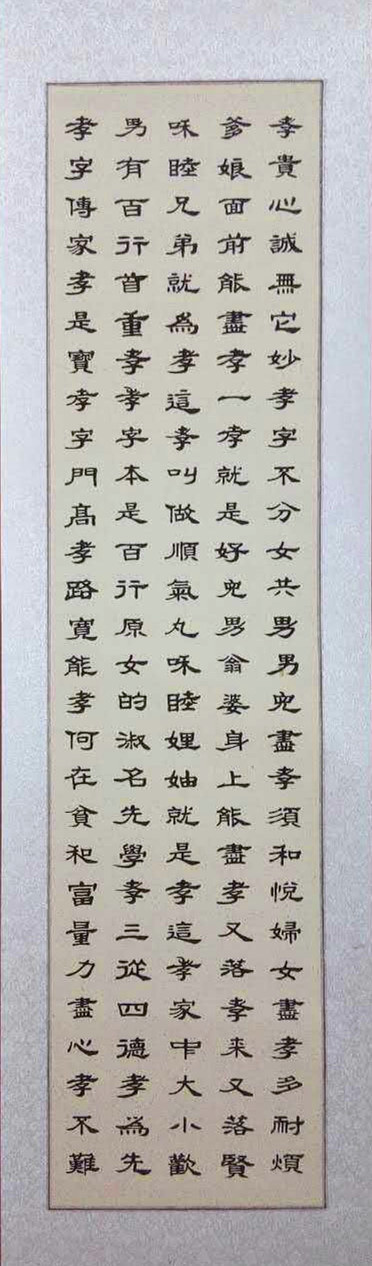 孝貴心誠無它妙孝字不分女共男男兒盡孝須和悅婦女盡孝多耐煩
爹娘面前能盡孝一孝就是好兒男翁婆身上能盡孝又落孝來又落賢
咊睦兄弟就為孝這孝叫做順氣丸咊睦娌妯就是孝這孝家中大小歡
男有百行首重孝孝字本是百行原女的淑名先學孝三從四德孝為先
孝字傳家孝是寶孝字門髙孝路寬能孝何在貧和富量力盡心孝不難